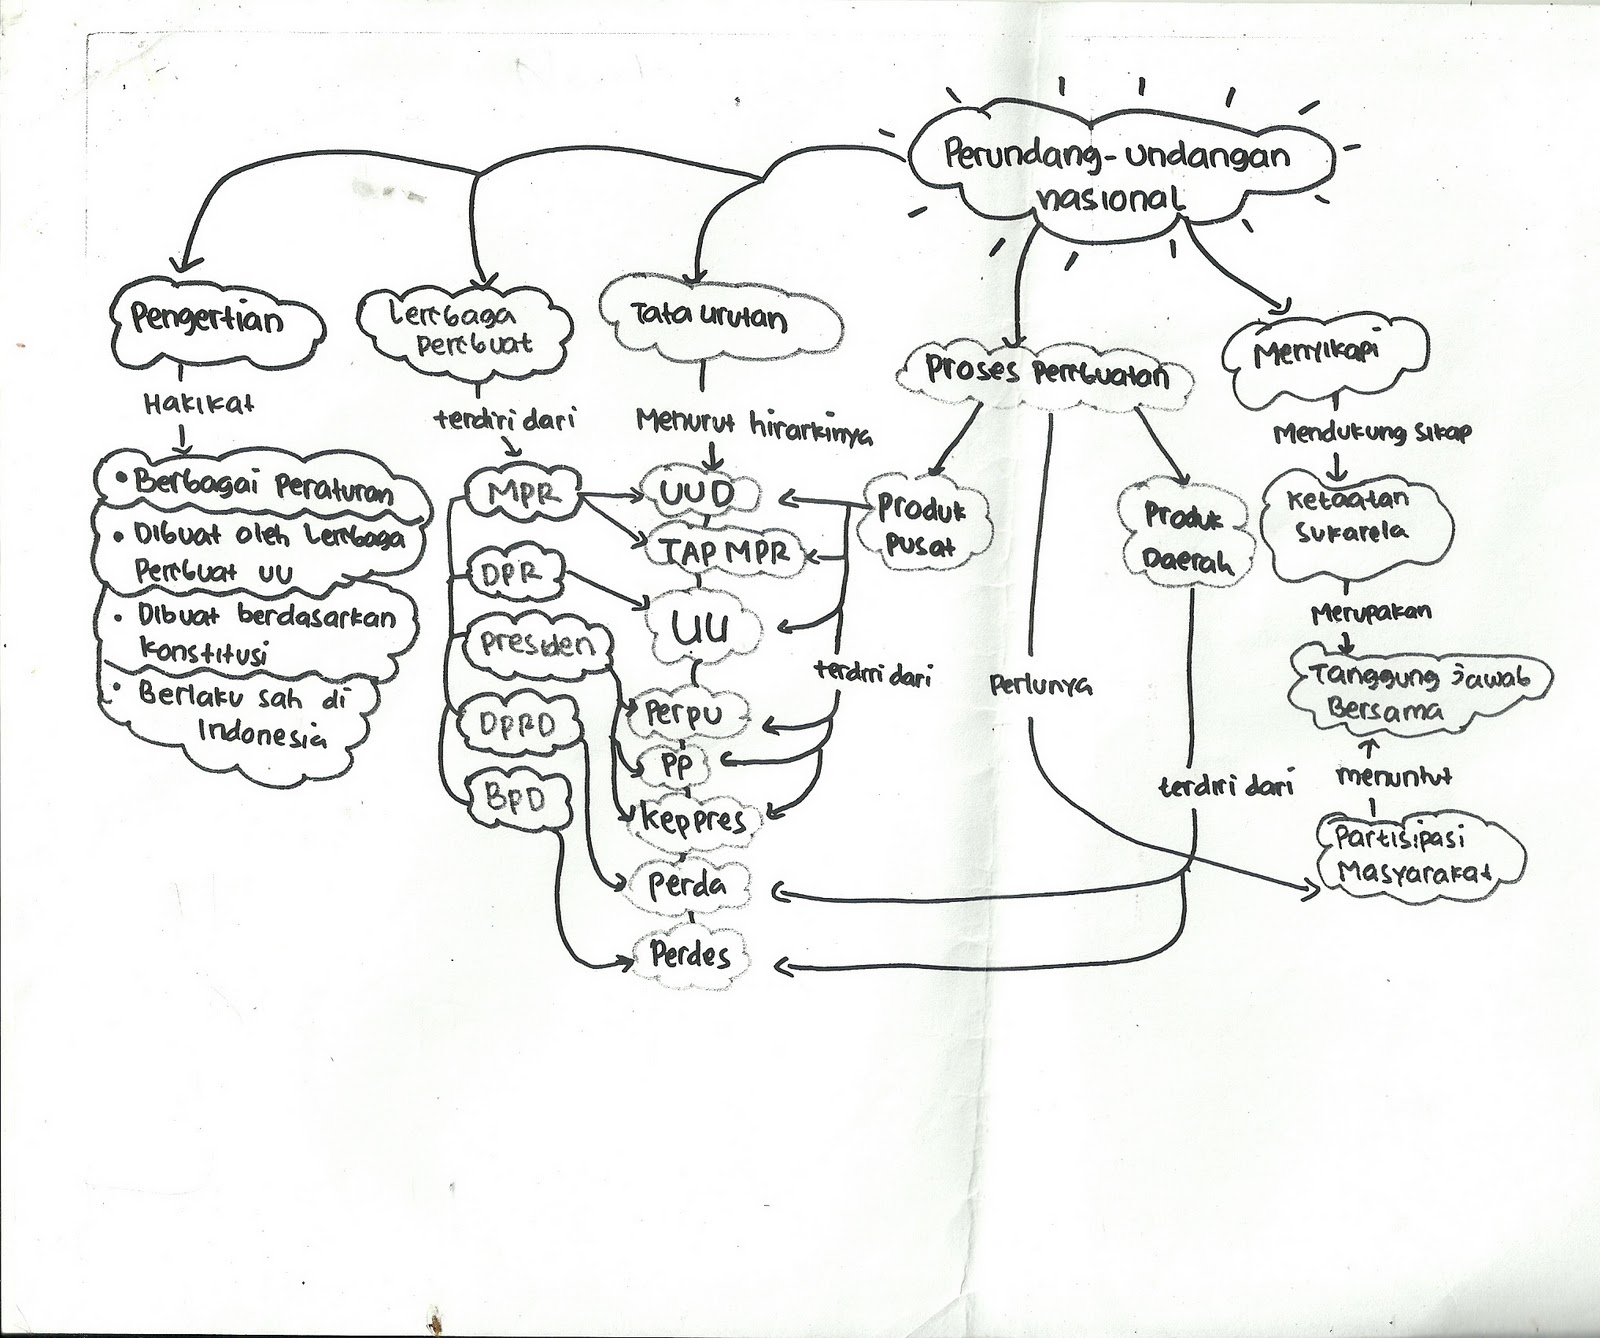 Perundang-undangan
nasional
Pengertian
Hakikat
• Berbagai Peraturan
• Dibuat oleh Lembaga
Pembuat UU
• Dibuat berdasarkan
konstitusi
• Berlaku sah di
Indonesia
Lembaga
pembuat
terdiri dari
MPR
DPR
presiden
DPRD
BPD
Tata urutan
Menurut hirarkinya
UUD
TAP MPR
UU
Perpu
PP
Keppres
Perda
Perdes
Proses pembuatan
Produk
Pusat
terdiri dari
Perlunya
Produk
Daerah
terdiri dari
Menyikapi
Mendukung sikap
Ketaatan
Sukarela
Merupakan
Tanggung jawab
Bersama
menuntut
Partisipasi
Masyarakat